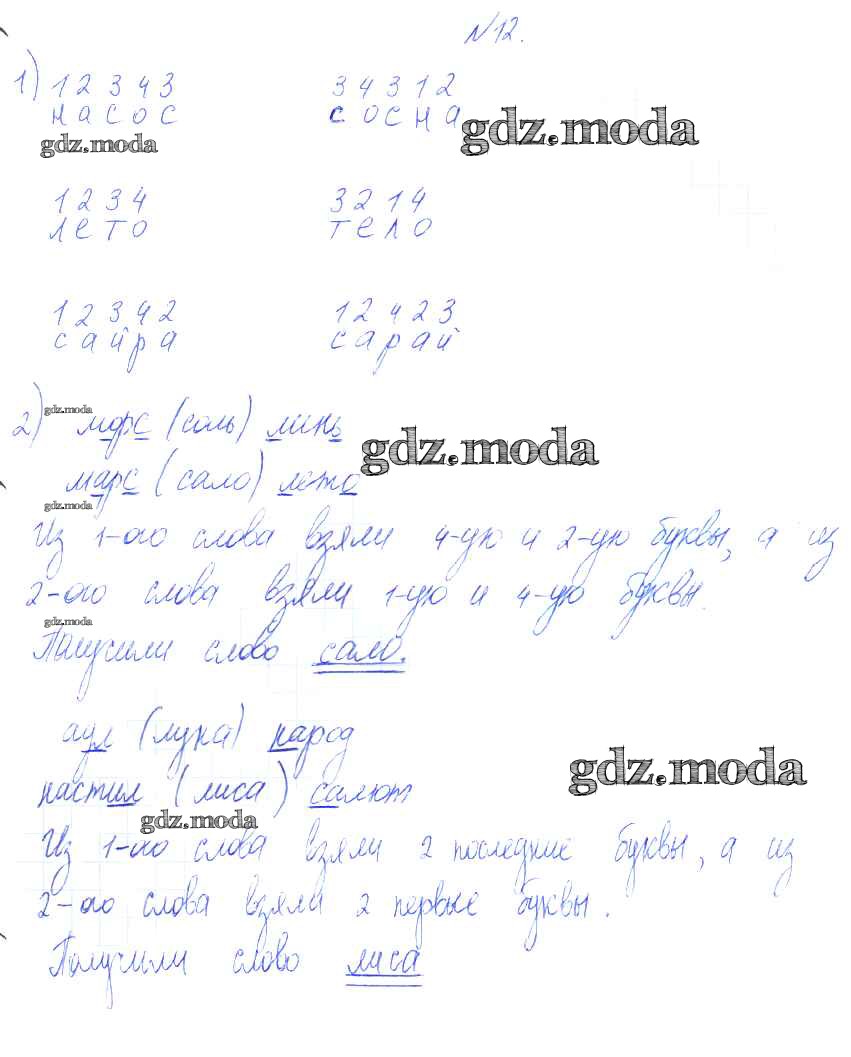 №12.
1) 1 2 3 4 3 3 4 3 1 2
н а с о с с о с н а
gdz.moda gdz.moda
1 2 3 4 3 2 1 4
л е т о т е л о
1 2 3 4 2 1 2 4 2 3
с а й р а с а р а й
gdz.moda
2) морс (соль) линь
gdz.moda
марс (сало) лето
gdz.moda
Из 1-ого слова взяли 4-ую и 2-ую буквы, а из
2-ого слова взяли 1-ую и 4-ую буквы.
gdz.moda
Получили слово сало.
аул (лука) народ
gdz.moda
настил (лиса) салют
gdz.moda
Из 1-ого слова взяли 2 последние буквы, а из
2-ого слова взяли 2 первые буквы.
Получили слово лиса